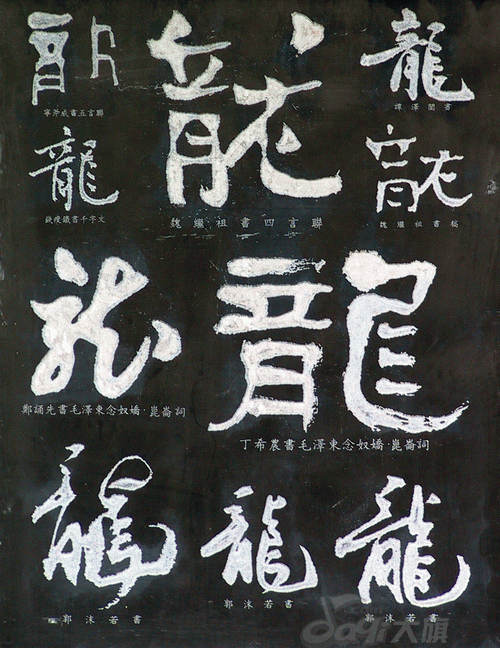 龍
寧斧成書五言聯
龍
魏繼祖書四言聯
龍
譚澤闓書
龍
錢瘦鐵書千字文
龍
魏繼祖書
龍
鄭誦先書毛澤東念奴嬌·崑崙詞
龍
丁希農書毛澤東念奴嬌·崑崙詞
龍
郭沫若書
龍
郭沫若書
龍
郭沫若書
daqi大旗